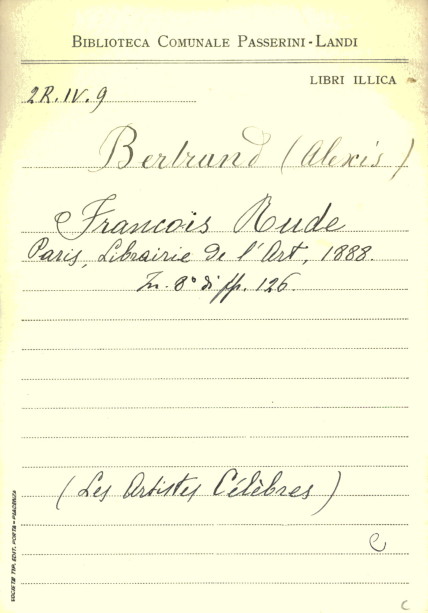 BIBLIOTECA COMUNALE PASSERINI-LANDI
LIBRI ILLICA
2R.IV.9
Bertrand (Alexis)
François Rude
Paris, Librairie de l'Art, 1888.
In. 8° di pp. 126.
(Les Artistes Célèbres)
C
C
SOCIETÀ TIP. EDIT. PORTA - PIACENZA